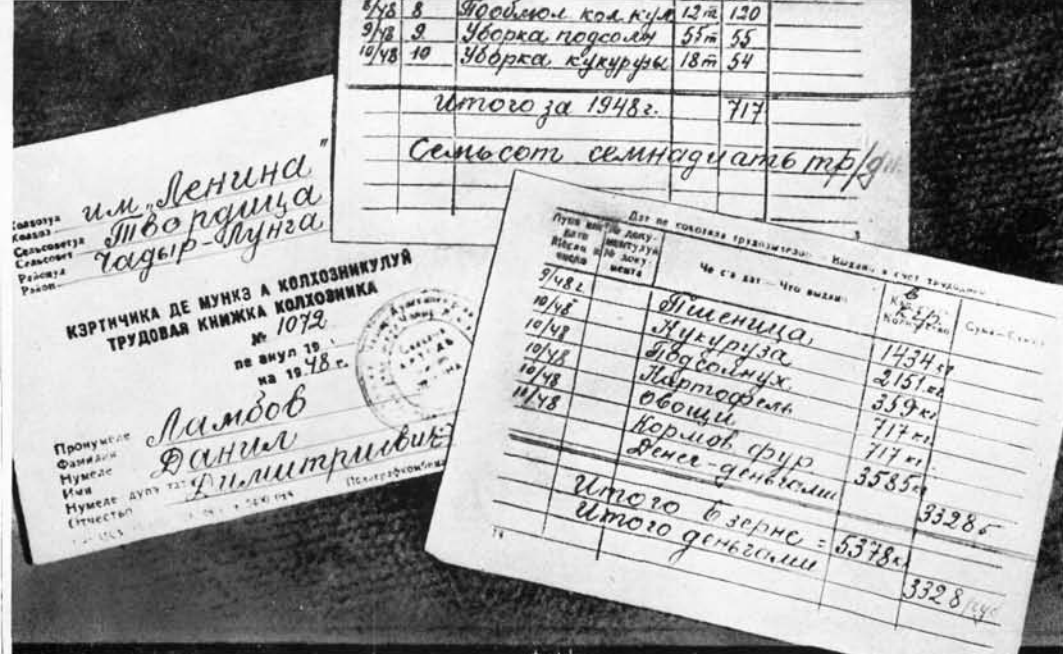 8/48 8 кол. кул 12 га 120
9/48 9 Уборка подсолн 55 га 55
10/48 10 Уборка кукурузы 18 га 54
Итого за 1948 г. 717
Семьсот семнадцать тр/дн.
Колхоз
им. „Ленина"
Сельсоветул
Сельсовет
Твордица
Районул
Район
Чадыр-Лунга
КЭРТИЧИКА ДЕ МУНКЭ А КОЛХОЗНИКУЛУЙ
ТРУДОВАЯ КНИЖКА КОЛХОЗНИКА
№ 1072
пе анул 19
на 1948 г.
Пронумеле
Фамилия
Ламбов
Нумеле
Имя
Данил
Нумеле дупэ татэ
Отчество
Димитриевич
Дат пе сокотяла трудозилелор — Выдано в счет трудодней
Месяц и число
№ документа
Че с'а дат — Что выдано
Количество
9/48 г. Пшеница 1434 кг
10/48 Кукуруза 2151 кг
10/48 Подсолнух 359 кг
10/48 Картофель 717 кг
10/48 Овощи 717 кг.
10/48 Кормов фур 3585 кг
Денег-деньгами 3328
Итого в зерне = 5378 кг
Итого деньгами 3328 руб